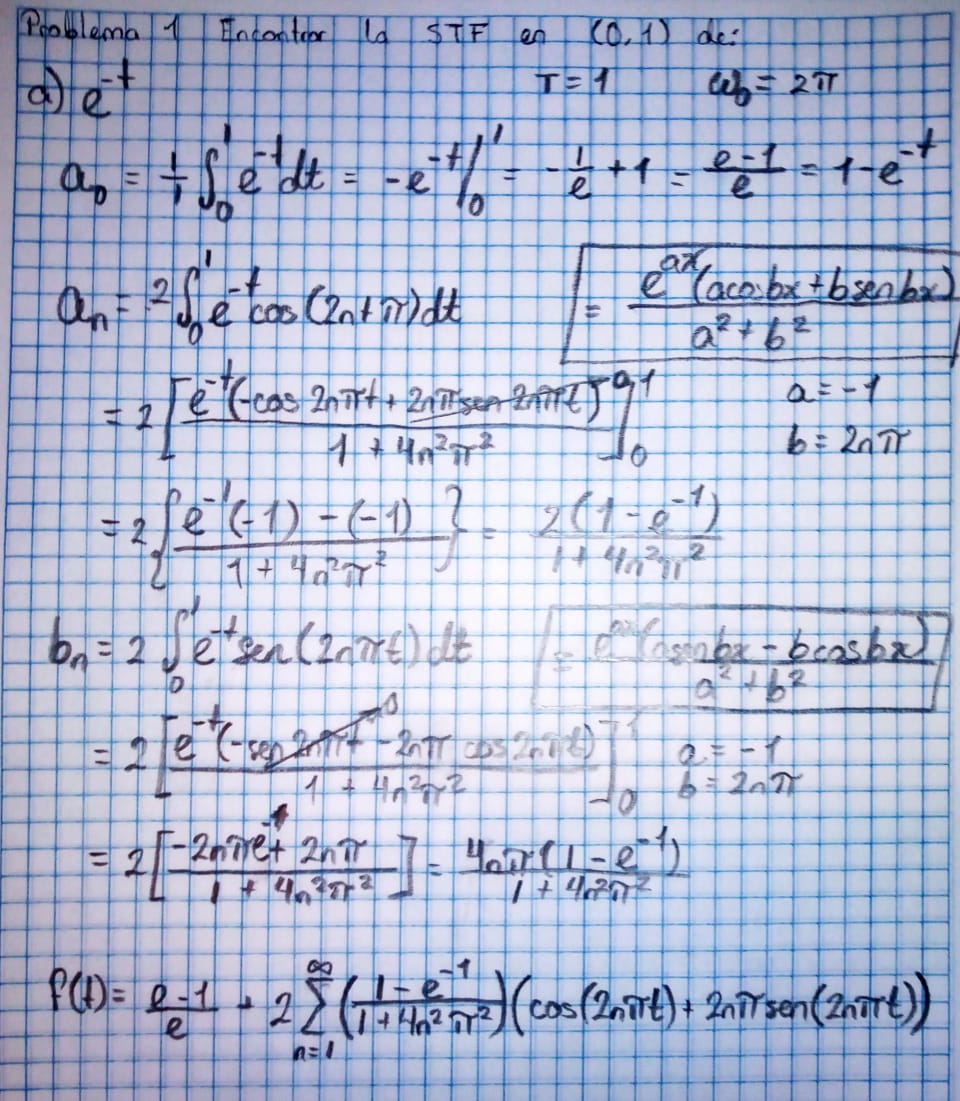 Problema 1 Encontrar la STF en (0,1) de:
a) e^-t T=1 ω₀=2π
a₀ = 1/1 ∫₀¹ e^-t dt = -e^-t /₀¹ = -1/e +1 = e-1/e = 1-e^-t
aₙ = 2∫₀¹ e^-t cos(2ntπ)dt = e^ax(acosbx+bsenbx)/a²+b²
= 2[e^-t(-cos 2nπt + 2nπsen 2nπt)/1 + 4n²π²]₀¹ 0 a=-1
b=2nπ
= 2{e^-1(-1) - (-1)/1 + 4n²π²} = 2(1-e^-1)/1 + 4n²π²
bₙ = 2 ∫₀¹ e^-t sen(2nπt)dt = e^ax(asenbx - bcosbx)/a²+b²
= 2[e^-t(-sen2nπt - 2nπ cos2nπt)/1 + 4n²π²]₀¹ 0 a=-1
b=2nπ
= 2[-2nπe^-1 + 2nπ/1 + 4n²π²] = 4nπ(1-e^-1)/1 + 4n²π²
f(t) = e-1/e + 2∑ₙ₌₁^∞ (1-e^-1/1+4n²π²)(cos(2nπt)+2nπsen(2nπt))